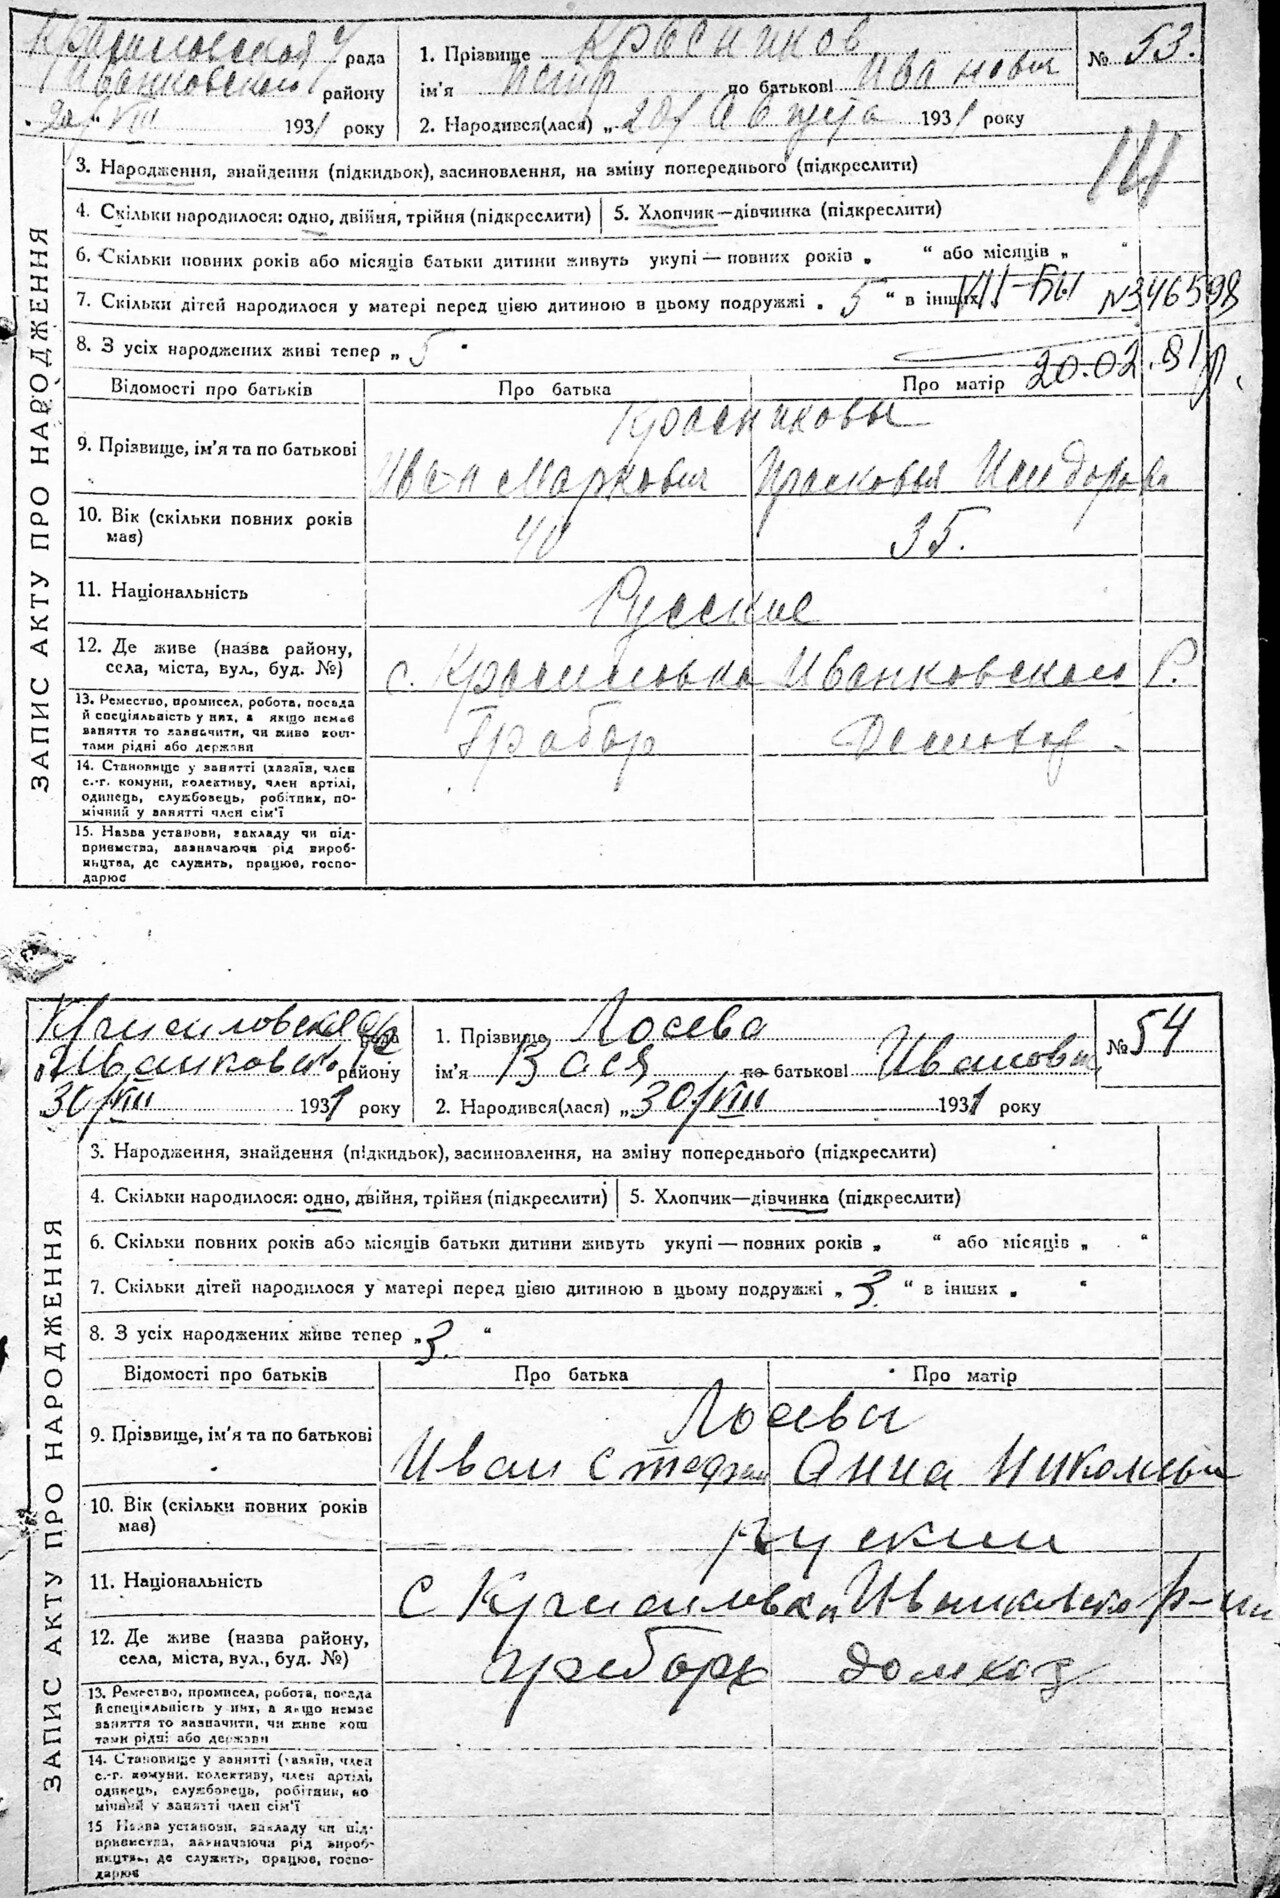 Красиловская с/рада
Иванковского району
20/VIII 1931 року
1. Прізвище Красников
ім'я Петр по батькові Иванович
2. Народився(лася) „ 20/ Августа 1931 року
№ 53.
3. Народження, знайдення (підкидьок), засиновлення, на зміну попереднього (підкреслити)
4. Скільки народилося: одно, двійня, трійня (підкреслити) 5. Хлопчик—дівчинка (підкреслити)
6. Скільки повних років або місяців батьки дитини живуть укупі — повних років „ “ або місяців „ “
7. Скільки дітей народилося у матері перед цією дитиною в цьому подружжі „ 5 “ в інших
VIII-БЫ №346598
8. З усіх народжених живі тепер „ 5 “
20.02.81р.
ЗАПИС АКТУ ПРО НАРОДЖЕННЯ
Відомості про батьків Про батька Про матір
Красниковы
9. Прізвище, ім'я та по батькові Иван Маркович Прасковья Исидоровн
10. Вік (скільки повних років має) 40 35.
11. Національність Русские
12. Де живе (назва району, села, міста, вул., буд. №) с. Красиловка Иванковского Р.
13. Ремество, промисел, робота, посада
й спеціяльність у них, а якщо немає
заняття то зазначити, чи живе кош-
тами рідні або держави
Грабар Домохоз.
14. Становище у занятті (хазяїн, член
с.-г. комуни, колективу, член артілі,
одинець, службовець, робітник, по-
мічний у занятті член сім'ї
15. Назва установи, закладу чи під-
приємства, зазначаючи рід вироб-
ництва, де служить, працює, госпо-
дарює
Красиловская с/рада
Иванковского району
30/VIII 1931 року
1. Прізвище Лосева
ім'я Вася по батькові Иванови
2. Народився(лася) „ 30/VIII 1931 року
№ 54
3. Народження, знайдення (підкидьок), засиновлення, на зміну попереднього (підкреслити)
4. Скільки народилося: одно, двійня, трійня (підкреслити) 5. Хлопчик—дівчинка (підкреслити)
6. Скільки повних років або місяців батьки дитини живуть укупі — повних років „ “ або місяців „ “
7. Скільки дітей народилося у матері перед цією дитиною в цьому подружжі „ 3 “ в інших „ “
8. З усіх народжених живе тепер „ 3. “
ЗАПИС АКТУ ПРО НАРОДЖЕННЯ
Відомості про батьків Про батька Про матір
Лосевы
9. Прізвище, ім'я та по батькові Иван Стефан Анна Николаевн
10. Вік (скільки повних років має)
руский
11. Національність
с Красиловки Иванковского р-на
12. Де живе (назва району, села, міста, вул., буд. №)
грабарь домхоз
13. Ремество, промисел, робота, посада
й спеціяльність у них, а якщо немає
заняття то зазначити, чи живе кош
тами рідні або держави
14. Становище у занятті (хазяїн, член
с.-г. комуни, колективу, член артілі,
одинець, службовець, робітник, по
мічний у занятті член сім'ї
15 Назва установи, закладу чи під-
приємства, зазначаючи рід вироб-
ництва, де служить, працює, госпо-
дарює